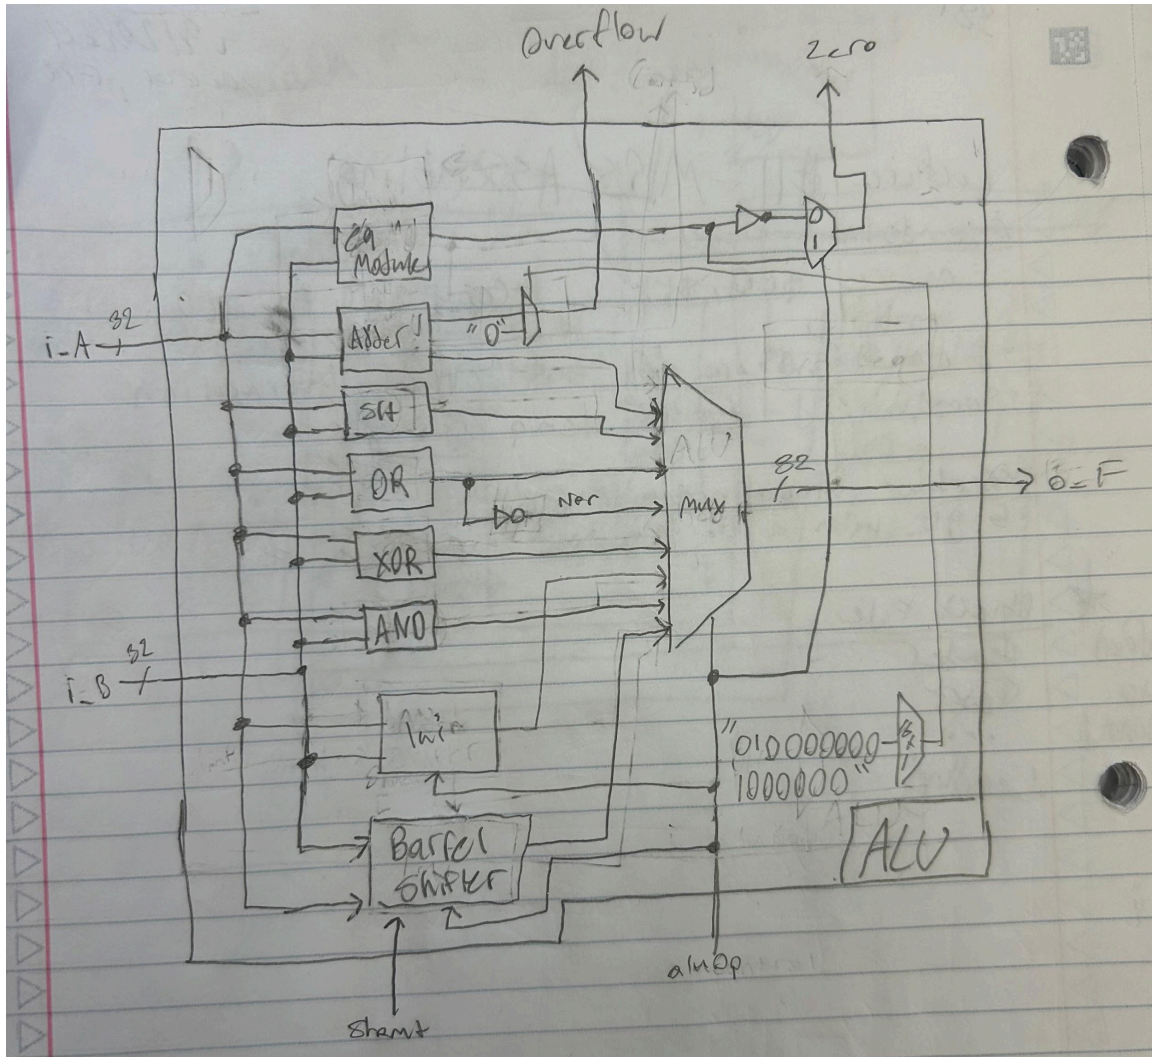 Overflow
Zero
Eq
Module
0
1
i_A
32
Adder
"0"
Slt
ALU
OR
Nor
Mux
32
o_F
XOR
AND
i_B
32
"010000000
1000000"
Barrel
Shifter
ALU
aluOp
Shamt